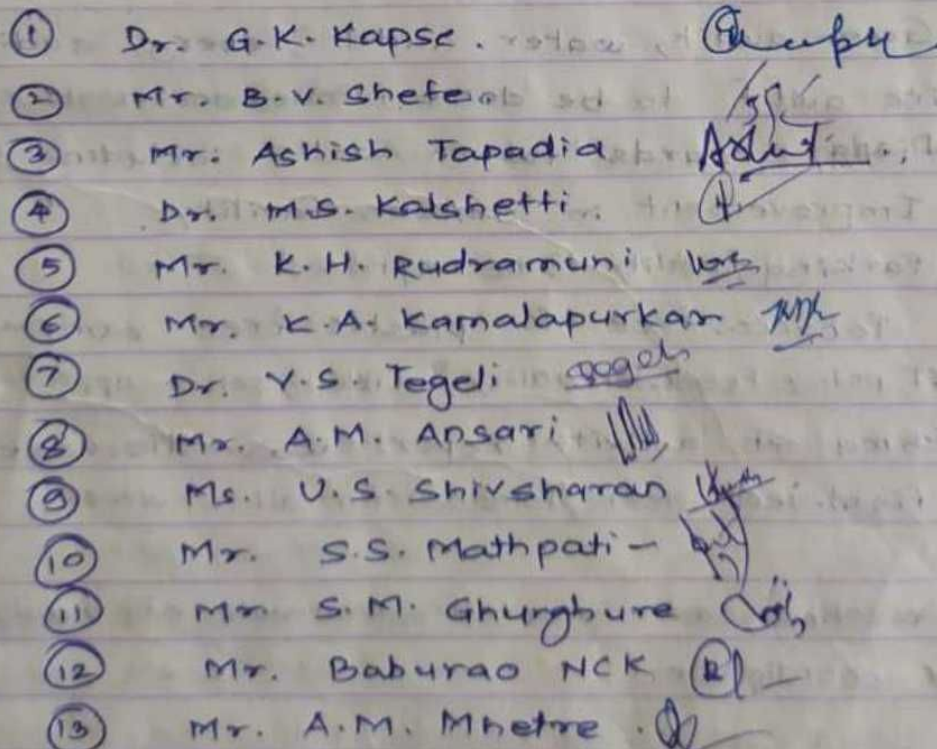 ① Dr. G.K. Kapse.
② Mr. B.V. Shete
③ Mr. Ashish Tapadia
④ Dr. M.S. Kalshetti
⑤ Mr. K.H. Rudramuni
⑥ Mr. K.A. Kamalapurkar
⑦ Dr. Y.S. Tegeli
⑧ Mr. A.M. Ansari
⑨ Ms. U.S. Shivsharan
⑩ Mr. S.S. Mathpati -
⑪ Mr. S.M. Ghurghure
⑫ Mr. Baburao NCK
⑬ Mr. A.M. Mhetre.